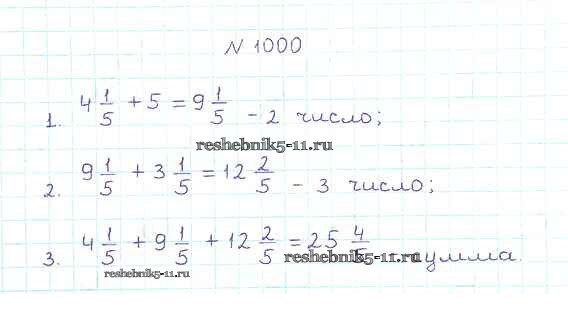 N 1000
1. 4 1/5 + 5 = 9 1/5 - 2 число;
reshebnik5-11.ru
2. 9 1/5 + 3 1/5 = 12 2/5 - 3 число;
3. 4 1/5 + 9 1/5 + 12 2/5 = 25 4/5 - сумма.
reshebnik5-11.ru
reshebnik5-11.ru